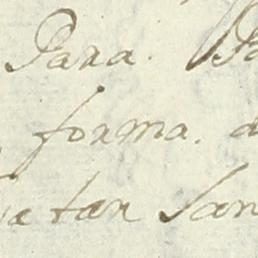 Para.
forma.
tan San